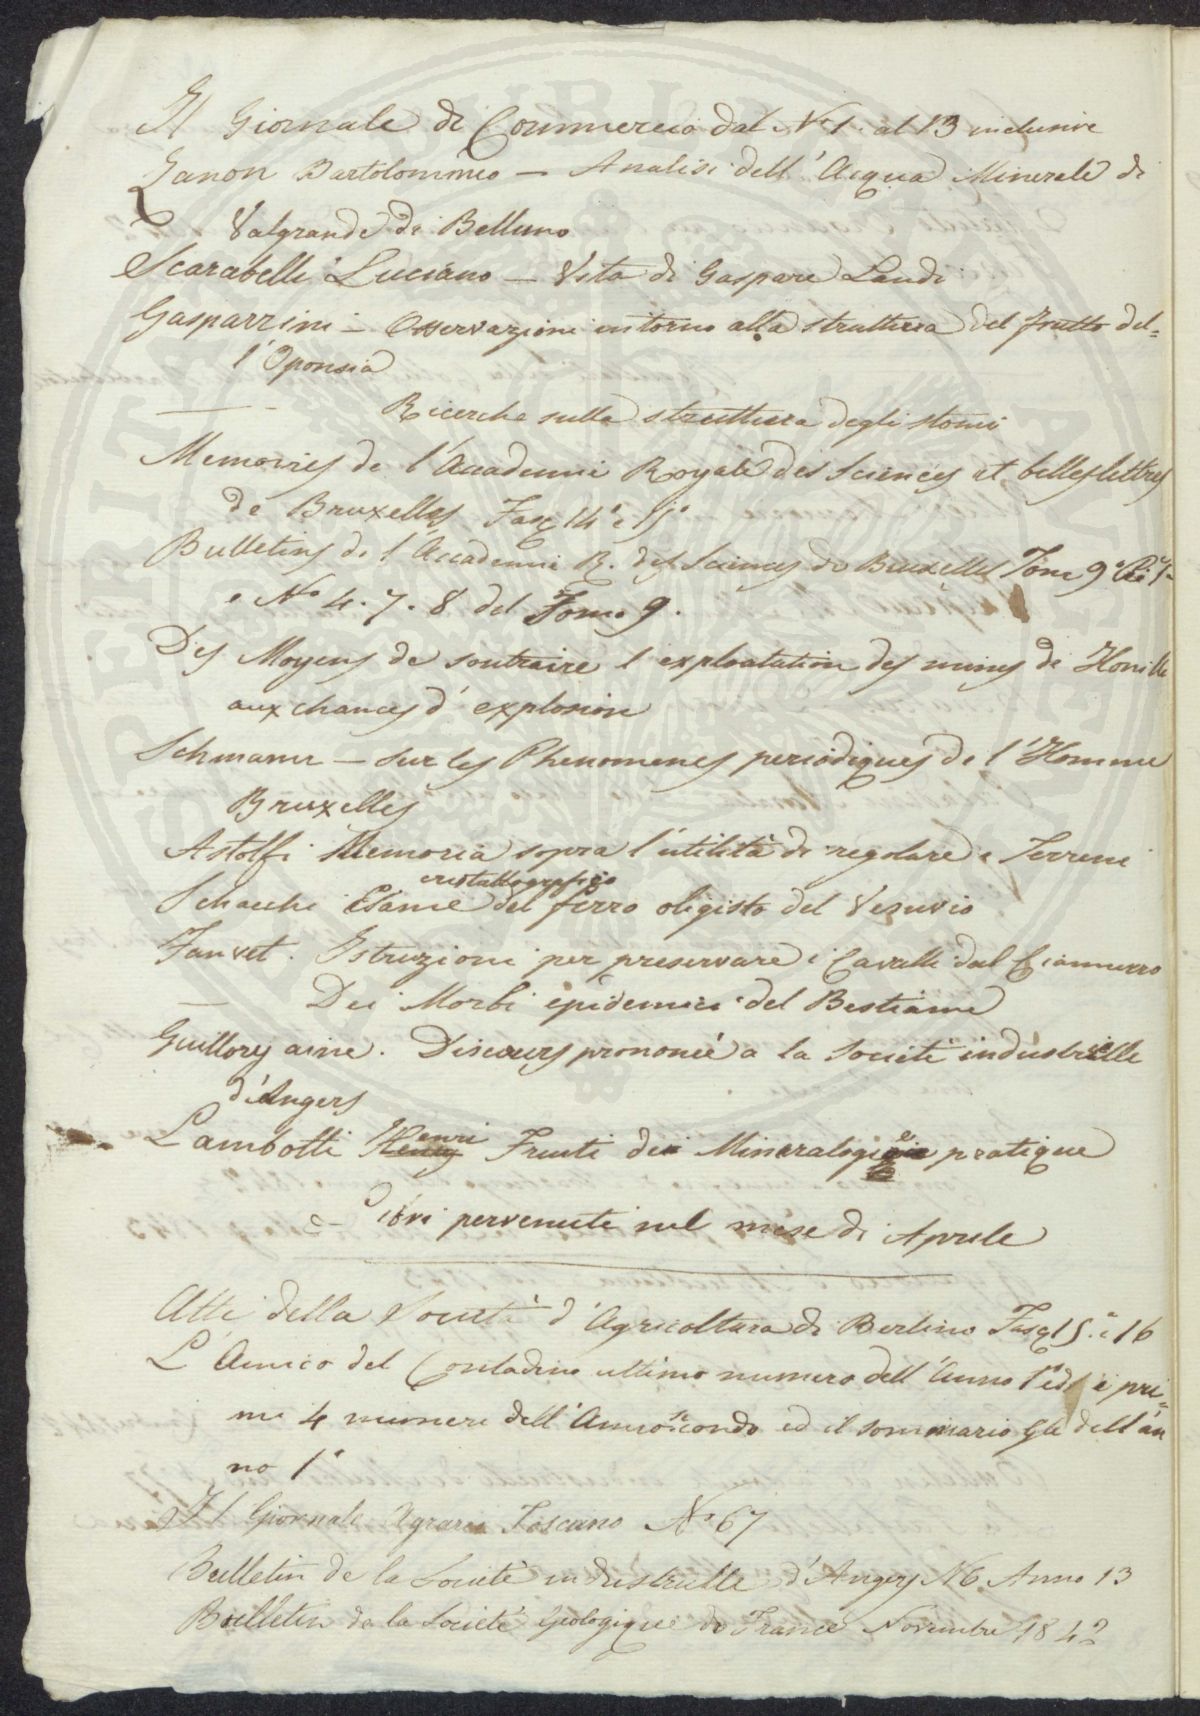 Il Giornale di Commercio dal N. 1. al 13 inclusive
Zanon Bartolommeo — Analisi dell' Acqua Minerale di
Valgrande di Belluno
Scarabelli Luciano — Vita di Gaspare Landi
Gasparrini — Osservazioni intorno alla struttura del frutto del=
l'Oponsia
— Ricerche sulla struttura degli stomi
Memoires de l'Accademie Royale des Sciences et belles lettres
de Bruxelles Fasc 14° e 15°
Bulletins de l'Accademie R. des Sciences de Bruxelles Tom 9°
e No 4. 7. 8 del Tomo 9.
Des Moyens de soutraire l'exploatation des mines de Houille
aux chances d'explosion
Schwann — Sur les Phenomenes periodiques de l'Homme
Bruxelles
Astolfi Memoria sopra l'utilità di regolare i Terreni
cristallografico
Scacchi Esame del ferro oligisto del Vesuvio
Fauvet. Istruzioni per preservare i Cavalli dal Ciamurro
— Dei Morbi epidemici del Bestiame
Guillory aine. Discours prononcé a la Societé industrielle
d'Angers
Henri
Lambotti Henry Traité de Mineralogie pratique
Libri pervenuti nel mese di Aprile
Atti della Società d'Agricoltura di Berlino Fasc 15. e 16
L'Amico del Contadino ultimo numero dell'Anno 1° ed i pri=
mi 4 numeri dell'Anno secondo ed il sommario dell'an
no 1°
Il Giornale Agrario Toscano No 67
Bulletin de la Societé industrielle d'Angers N6. Anno 13
Bulletin de la Societé Geologique de France Novembre 1842